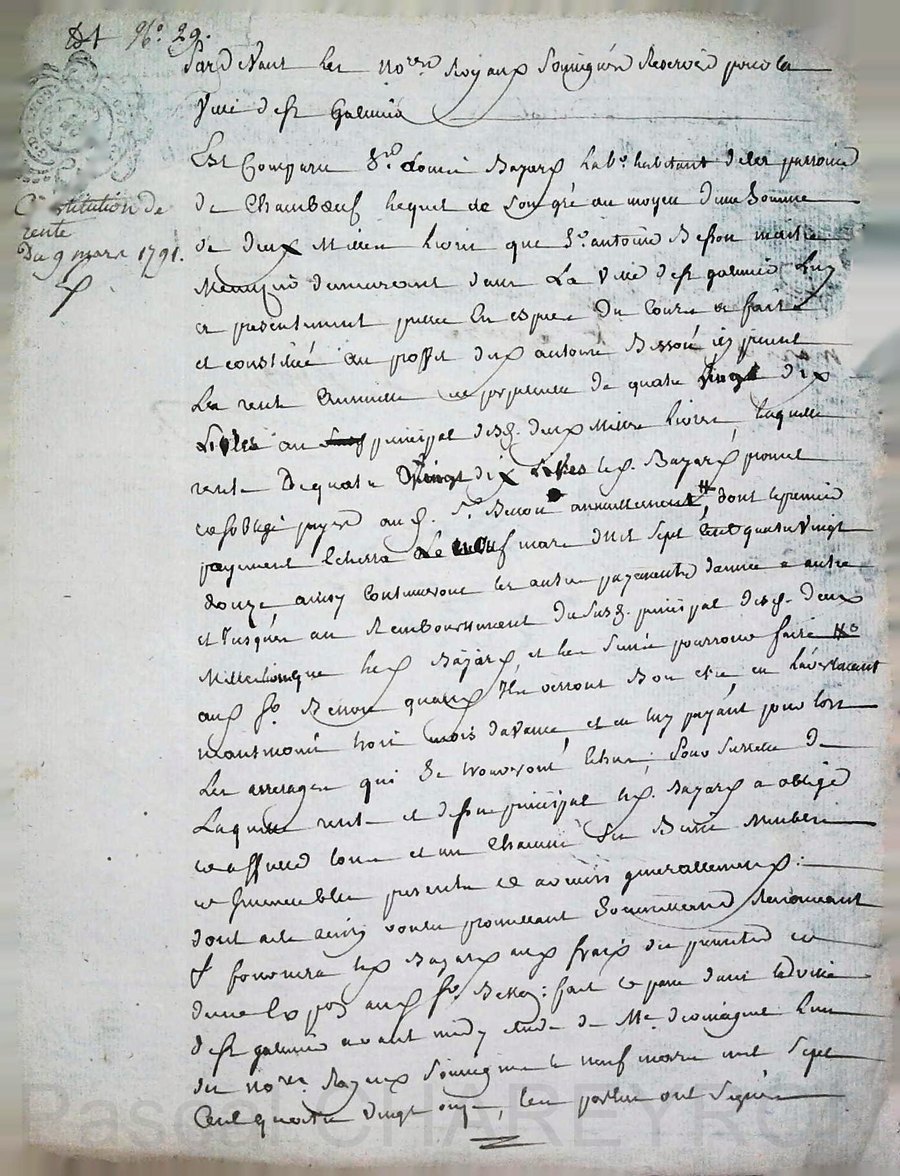 N.° 29.
Par devant les no.res Royaux soussignés Reservés pour la
ville de st Galmier
Constitution de
rente
Du 9 mars 1791.
Est Comparu S.r Louis Bayard lab.r habitant de la parroisse
de Chambœuf lequel de son gré au moyen d'une somme
de deux Milles livres que S.r antoine Besson maitre
Menuisier demeurant dans La Ville de st galmier luy
a presentement en especes du Cours a fait
et constitué au proffit dud antoine Besson icy present
La rente Annuelle et perpetuelle de quatre vingt dix
Livres au principal desd. deux Mille livres, laquelle
rente De quatre Vingt dix Livres led. Bayard promet
et s'oblige payer aud. S.r Besson annuellement, dont le premier
payement Echerra Le neuf mars mil sept Cent quatre vingt
douze ainsy Continueront les autres payements d'année a autre
et Jusques au Remboursement du susd. principal desd. deux
Mille livres que led Bayard et les siens pourront faire
aud Sr. Besson quand Ils verront Bon etre en L'avertissant
trois mois d'avance, et en luy payant pour lors
Les arrerages qui se trouveront Echus; pour surreté de
Laquelle rente et de son principal led. Bayard a obligé
et affecté tous et un Chacuns ses Biens Meubles
et Immeubles presents et avenirs generallement:
dont acte ainsy voulu promettant Renonceant
& fournira led Bayard aux fraix des presentes et
d'une Exp.on aud Sr. Besson: fait et passé dans lad ville
de st galmier avant midy etude de Me. l'un
des nores. Royaux soussignes le neuf mars mil sept
Cent quatre vingt onze, les parties ont signé
Pascal CHAREYRON